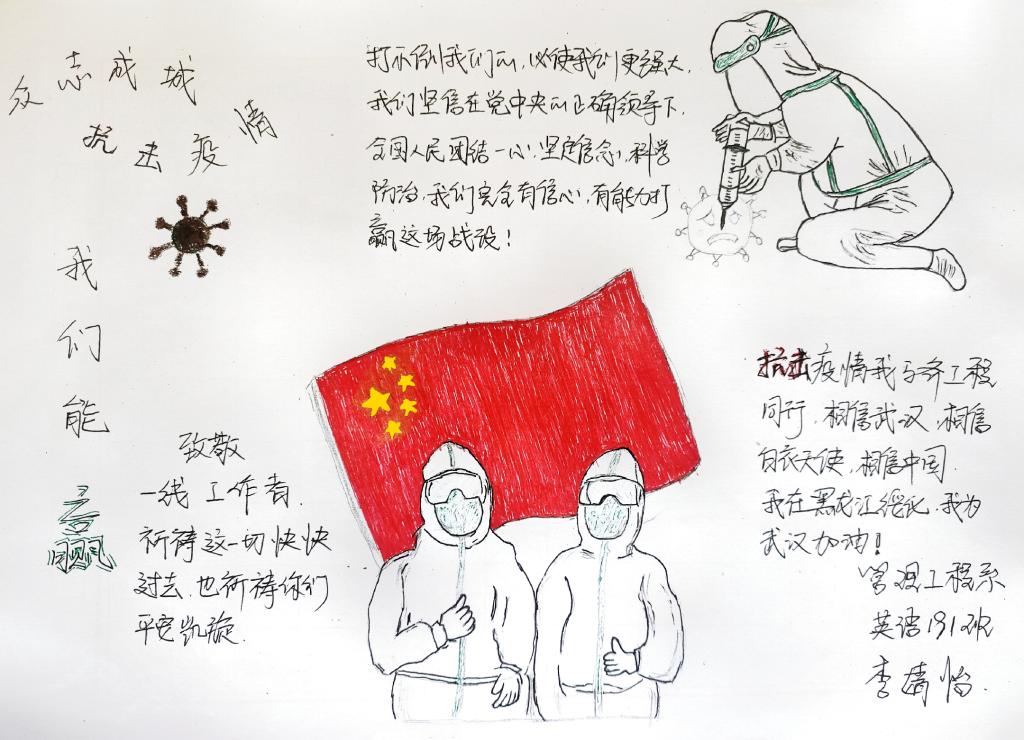 众志成城
抗击疫情
我们能
赢
打不倒我们的,必使我们更强大.
我们坚信在党中央的正确领导下.
全国人民团结一心,坚定信念,科学
防治,我们完全有信心,有能力打
赢这场战役!
致敬
一线工作者.
祈祷这一切快快
过去,也祈祷你们
平安凯旋.
抗击疫情我与济工程
同行,相信武汉,相信
白衣天使,相信中国.
我在黑龙江绥化,我为
武汉加油!
管理工程系
英语191班
李婧怡.